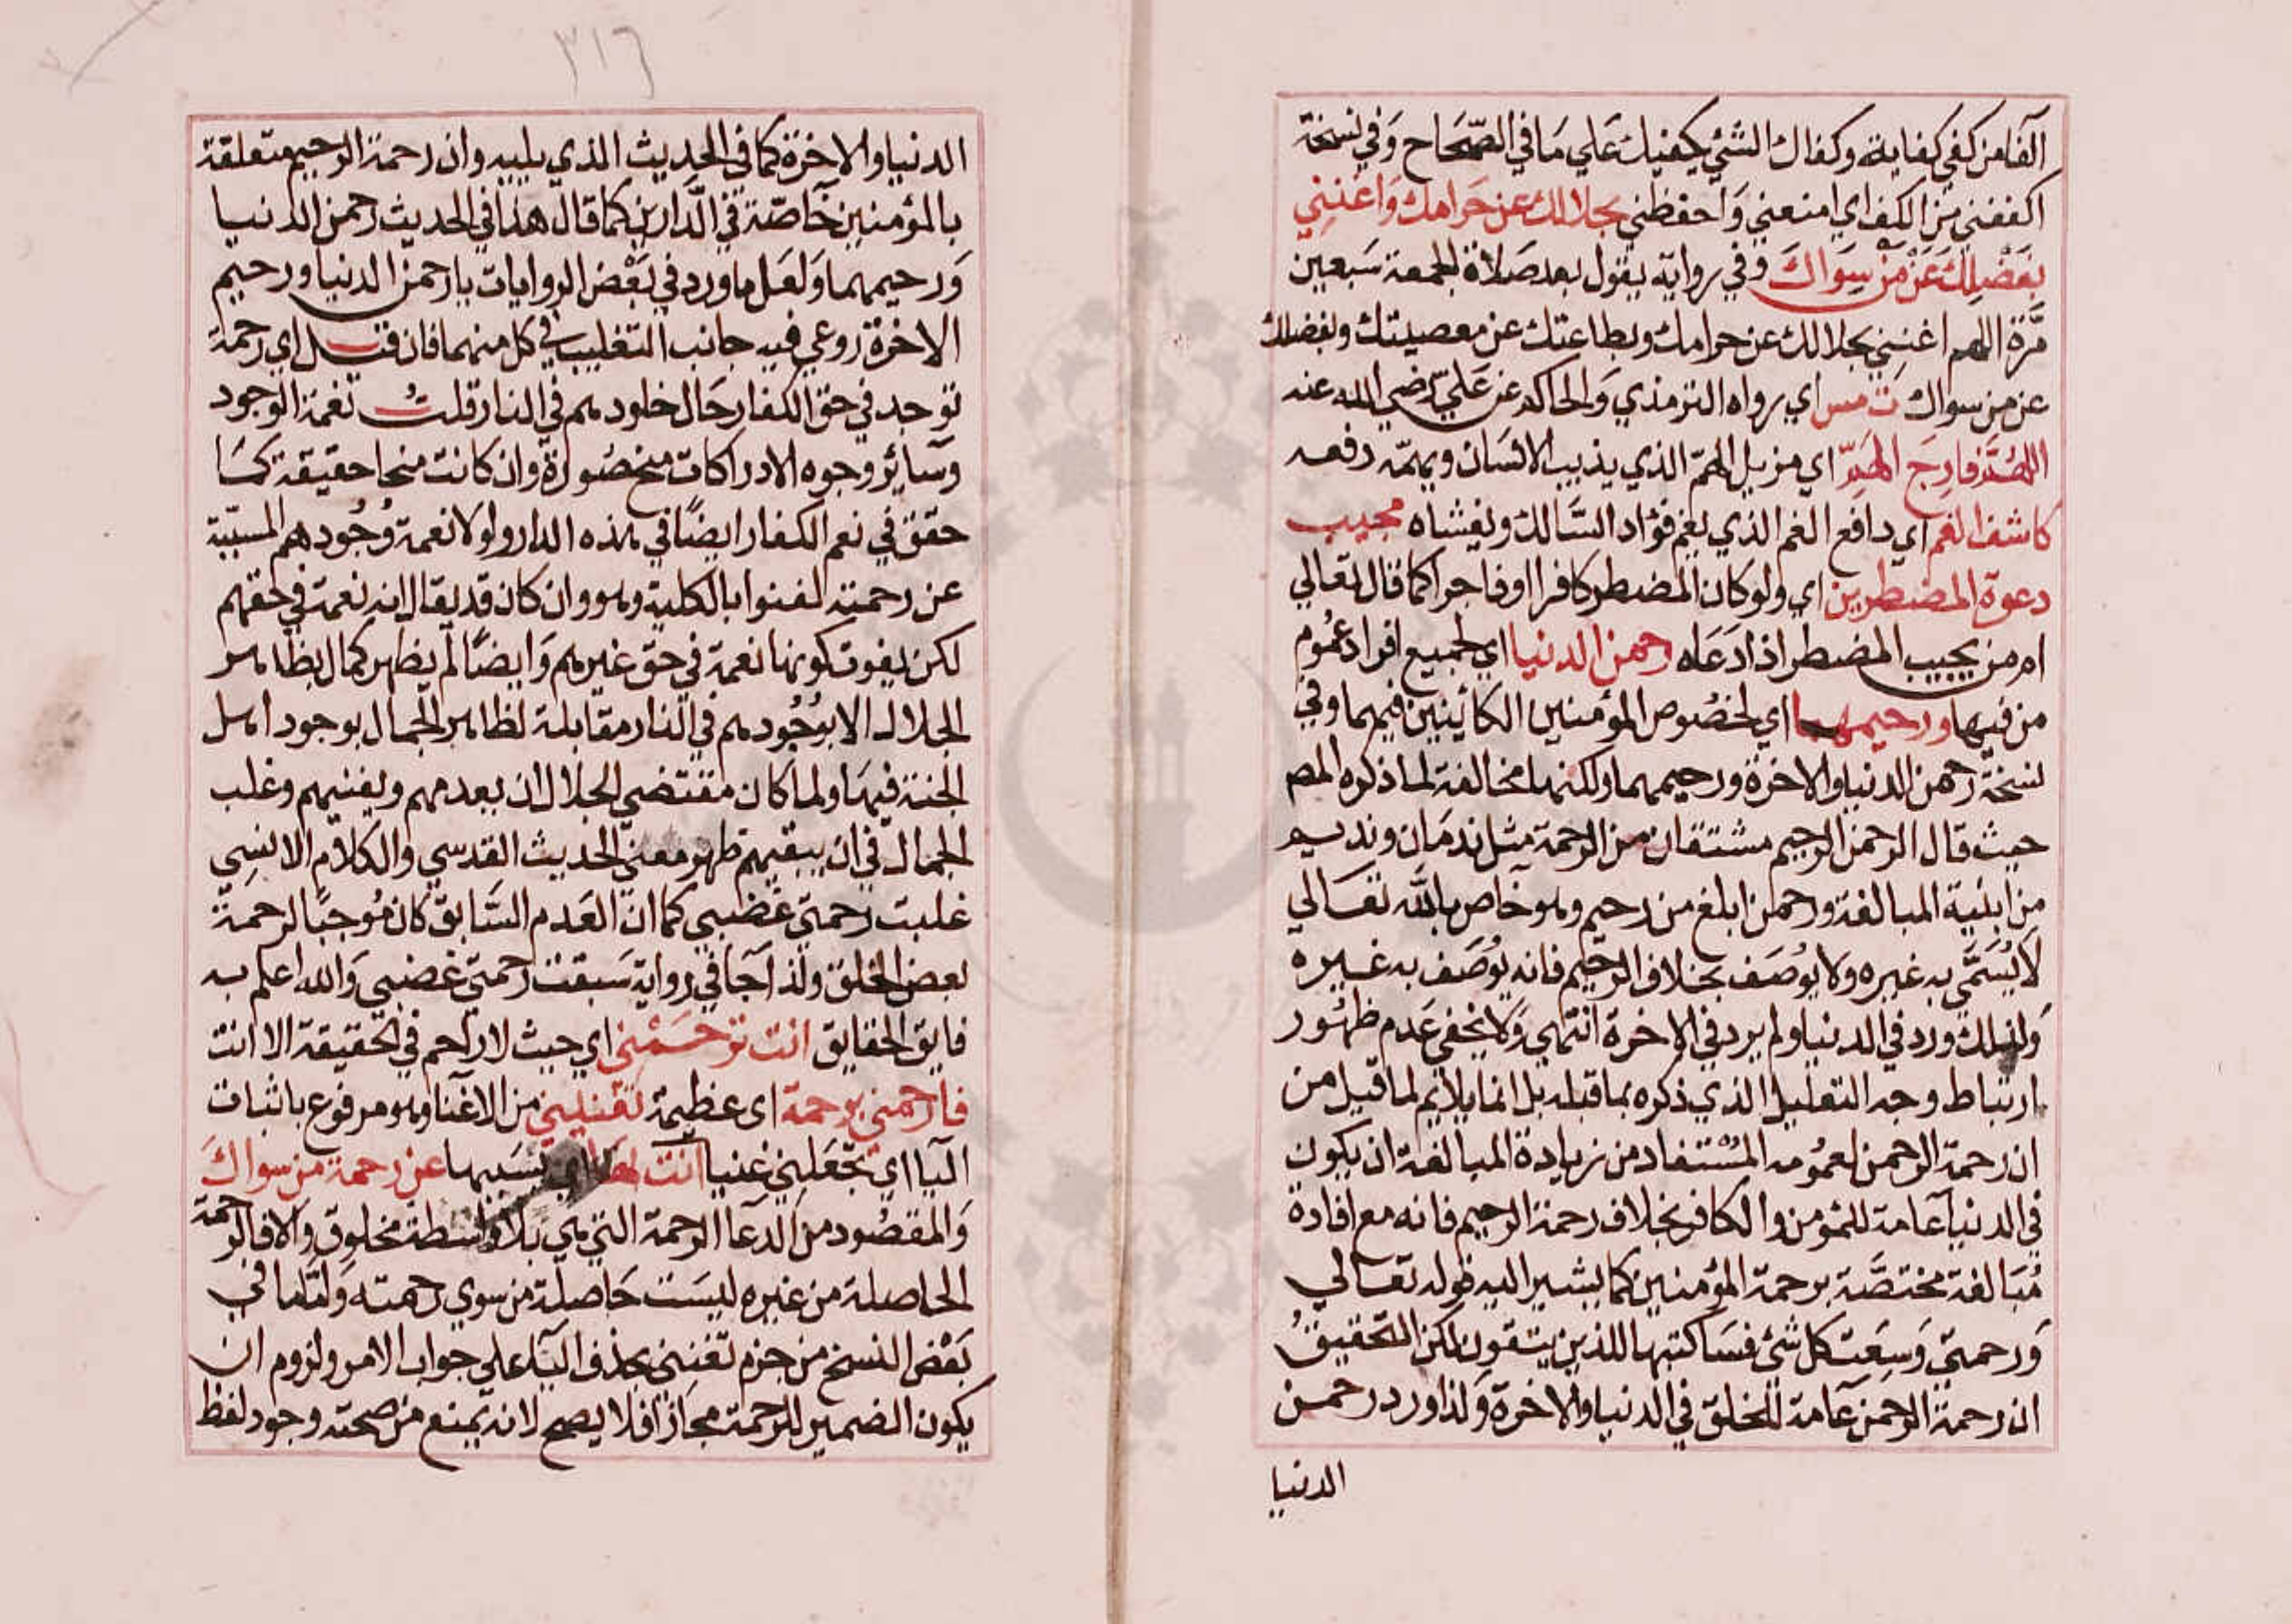 الفا من كفي كفاية وكفاك الشئ يكفيك علي مَا في الصّحَاح وَفي نسخة
اكففني من الكف اي امنعني وَاحفظني بحلالك عن حَرامك وَاغنِني
بفَضْلِكَ عَنْ مَنْ سِوَاكَ وفي رواية يقول بعد صَلاة الجمعة سَبعين
مَرّة اللهم اغنني بحلالك عن حرامك وبطاعتك عن معصيتك وبفضلك
عن من سواك ت مس اي رواه الترمذي وَالحاكم عن عَليّ رضي الله عنه
اللهُمَّ فارجَ الهَمِّ اي مزيل الهمّ الذي يذيب الانسَان ويهمّه دفعه
كاشف الغم اي دافع الغم الذي يغم فؤاد السَّالك ويغشاه مجيب
دعوة المضطرين اي ولو كان المضطر كافرا او فاجرا كما قال تعالي
امن يجيب المضطر اذا دَعَاه رحمن الدنيا اي لجميع افراد عمُوم
من فيها ورحيمهما اي لخصُوص المؤمنين الكائنين فيهما وفي
نسخة رحمن الدنيا والاخرة ورحيمهما ولكنها مخالفة لما ذكره المصر
حيث قال الرحمن الرحيم مشتقان من الرحمة مثل ندمَان ونديم
من ابنية المبالغة ورحمن ابلغ من رحيم وهو خاص بالله تعَالي
لا يُسَمَّي به غيره ولا يوُصَف بخلاف الرحيم فانه يُوصَف به غيره
وَلذلك ورد في الدنيا ولم يرد في الاخرة انتهي وَلا يخفي عَدم ظهُور
ارتباط وجه التعليل الذي ذكره بما قبله بل انما يلايم لما قيل من
ان رحمة الرحمن لعمُومه المُسْتفاد من زيادة المبالغة ان يكون
في الدنيا عَامة للمُؤمن والكافر بخلاف رحمة الرحيم فانه مع افادة
مُبَالغة مختصَّة برحمة المؤمنين كما يشير اليه قوله تعَالي
وَرحمتي وَسِعَت كل شئ فسَاكتبها للذين يتقون لكن التحقيقُ
ان رحمة الرحمن عَامة للخلق في الدنيا والاخرة وَلذا ورد رحمن
الدنيا
٣١٦
الدنيا والاخرة كما في الحديث الذي يليه وان رحمة الرحيم متعلقة
بالمؤمنين خَاصّة في الدَّارين كما قال هذا في الحديث رحمن الدنيا
وَرحيمهما وَلعَل ما ورد في بَعْض الروايات يا رحمن الدنيا ورحيم
الاخرة روعي فيه جانب التغليب في كل منهما فان قيل اي رحمة
توجد في حق الكفار حَال خلودهم في النار قلت نعمة الوجود
وسَائر وجوه الادراكات منحصُورة وان كانت منحا حقيقة كمَا
حقق في نعم الكفار ايضًا في هذه الدار ولولا نعمة وُجُودهم المسببّة
عن رحمته لفنوا بالكلية وهو وان كان قد يقال انه نعمة في حقهم
لكن يفوت كونها نعمة في حق غيرهم وَايضًا لم يظهر كمال بظاهر
الجلال الا بوُجُودهم في النار مقابلة لظاهر الجمال بوجود اهل
الجنة فيهَا ولما كان مقتضي الجلال ان يعدمهم ويفنيهم وغلب
الجمال في ان يبقيهم ظهر معني الحديث القدسي والكلام الانسِي
غلبت رحمتي غضبي كما ان العَدم السَّابق كان مُوجبًا لرحمة
بعض الخلق ولذا جَا في رواية سَبقت رحمتي غضبي وَالله اعلم به
فايق الحقايق انت ترحَمْني اي حيث لا رَاحم في الحقيقة الا انت
فارحمني برحمة اى عظيمة تغنيني من الاغنا وهو مرفوع باثبات
اليا اي تجعَلني غنيا انت بها اي بسَببها عن رحمة من سواكَ
وَالمقصُود من الدعَا الرحمة التي هي بلا وَاسطة مخلوق وَالا فالرحمة
الحاصلة من غيره ليسَت حَاصلة من سوي رحمته وَامّا ما في
بَعْض النسخ من جزم تغنني بحذف اليَآء علي جواب الامر ولزوم ان
يكون الضمير للرحمة مجازا فلا يصح لانه يمنع من صحته وجود لفظ